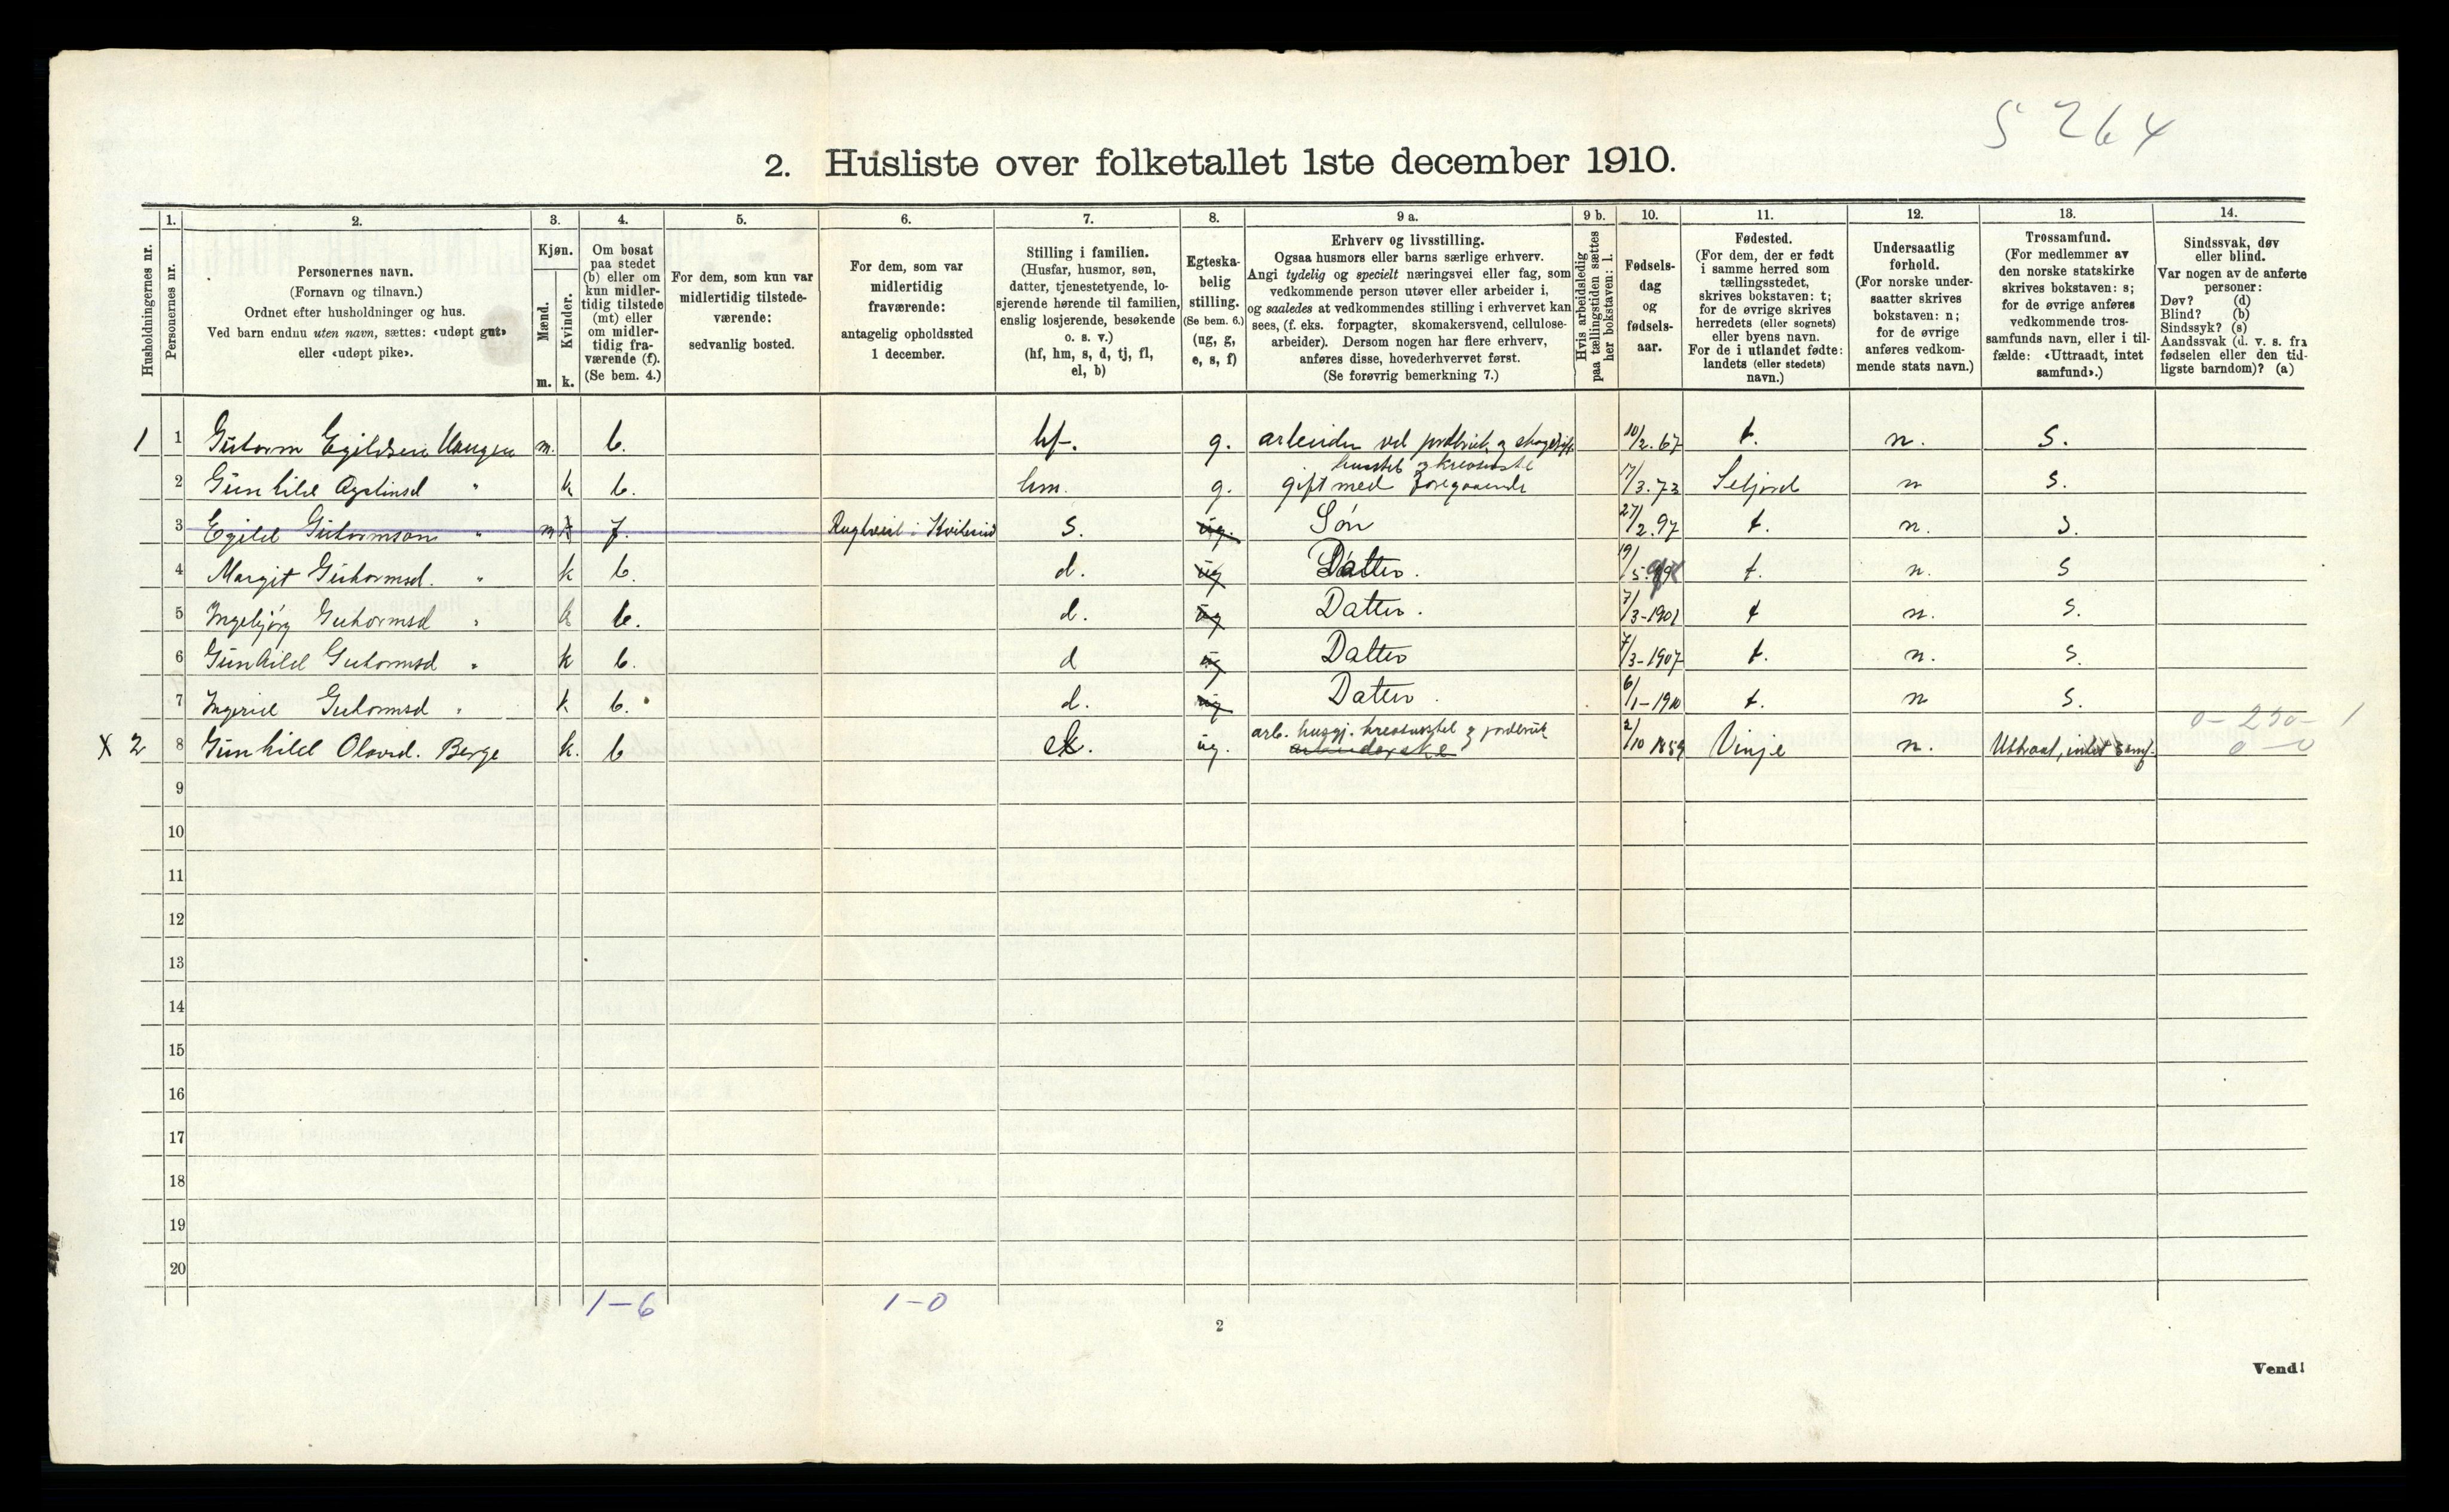 5264
2. Husliste over folketallet 1ste december 1910.
Husholdningernes nr.
1.
Personernes nr.
2.
Personernes navn.
(Fornavn og tilnavn.)
Ordnet efter husholdninger og hus.
Ved barn endnu uten navn, sættes: «udøpt gut»
eller «udøpt pike».
3.
Kjøn.
Mænd.
m.
Kvinder.
k.
4.
Om bosat
paa stedet
(b) eller om
kun midler-
tidig tilstede
(mt) eller
om midler-
tidig fra-
værende (f).
(Se bem. 4.)
5.
For dem, som kun var
midlertidig tilstede-
værende:
sedvanlig bosted.
6.
For dem, som var
midlertidig
fraværende:
antagelig opholdssted
1 december.
7.
Stilling i familien.
(Husfar, husmor, søn,
datter, tjenestetyende, lo-
sjerende hørende til familien,
enslig losjerende, besøkende
o. s. v.)
(hf, hm, s, d, tj, fl,
el, b)
8.
Egteska-
belig
stilling.
(Se bem. 6.)
(ug, g,
e, s, f)
9 a.
Erhverv og livsstilling.
Ogsaa husmors eller barns særlige erhverv.
Angi tydelig og specielt næringsvei eller fag, som
vedkommende person utøver eller arbeider i,
og saaledes at vedkommendes stilling i erhvervet kan
sees, (f. eks. forpagter, skomakersvend, cellulose-
arbeider). Dersom nogen har flere erhverv,
anføres disse, hovederhvervet først.
(Se forøvrig bemerkning 7.)
9 b.
Hvis arbeidsledig
paa tællingstiden sættes
her bokstaven: l.
10.
Fødsels-
dag
og
fødsels-
aar.
11.
Fødested.
(For dem, der er født
i samme herred som
tællingsstedet,
skrives bokstaven: t;
for de øvrige skrives
herredets (eller sognets)
eller byens navn.
For de i utlandet fødte:
landets (eller stedets)
navn.)
12.
Undersaatlig
forhold.
(For norske under-
saatter skrives
bokstaven: n;
for de øvrige
anføres vedkom-
mende stats navn.)
13.
Trossamfund.
(For medlemmer av
den norske statskirke
skrives bokstaven: s;
for de øvrige anføres
vedkommende tros-
samfunds navn, eller i til-
fælde: «Uttraadt, intet
samfund».)
14.
Sindssvak, døv
eller blind.
Var nogen av de anførte
personer:
Døv? (d)
Blind? (b)
Sindssyk? (s)
Aandssvak (d. v. s. fra
fødselen eller den tid-
ligste barndom)? (a)
1 1 Gutorm Egildsen Haugen m. b. hf. g. arbeider ved jordbruk og skogsdrift 10/2. 67 t. n. s.
husstel og kreaturstel
2 Gunhild " k b. hm. g. gift med foregaaende 17/3. 73 Seljord n s.
3 Egild Gutormson " m k f. i Kviteseid s. ug Søn 27/2. 97 t. n. s.
4 Margit Guthormsd. " k b. d. ug Datter. 19/5. t. n. s
5 Ingebjørg Guthormsd " k b. d. ug Datter. 7/3-1901 t n. s.
6 Gunhild Gutormsd " k b. d ug Datter 7/3-1907 t. n. s.
7 Ingerid Gutormsd " k b. d. ug Datter. 6/1-1910 t. n s.
0-250-1
arb. husgj. kreaturstel og jordbruk
X 2 8 Gunhild Olavsd. Berge k. b el. ug. arbeiderske 2/10 1859 Vinje n. Uttraat, intet samf. 0-0
9
10
11
12
13
14
15
16
17
18
19
20
1-6 1-0
2
Vend!